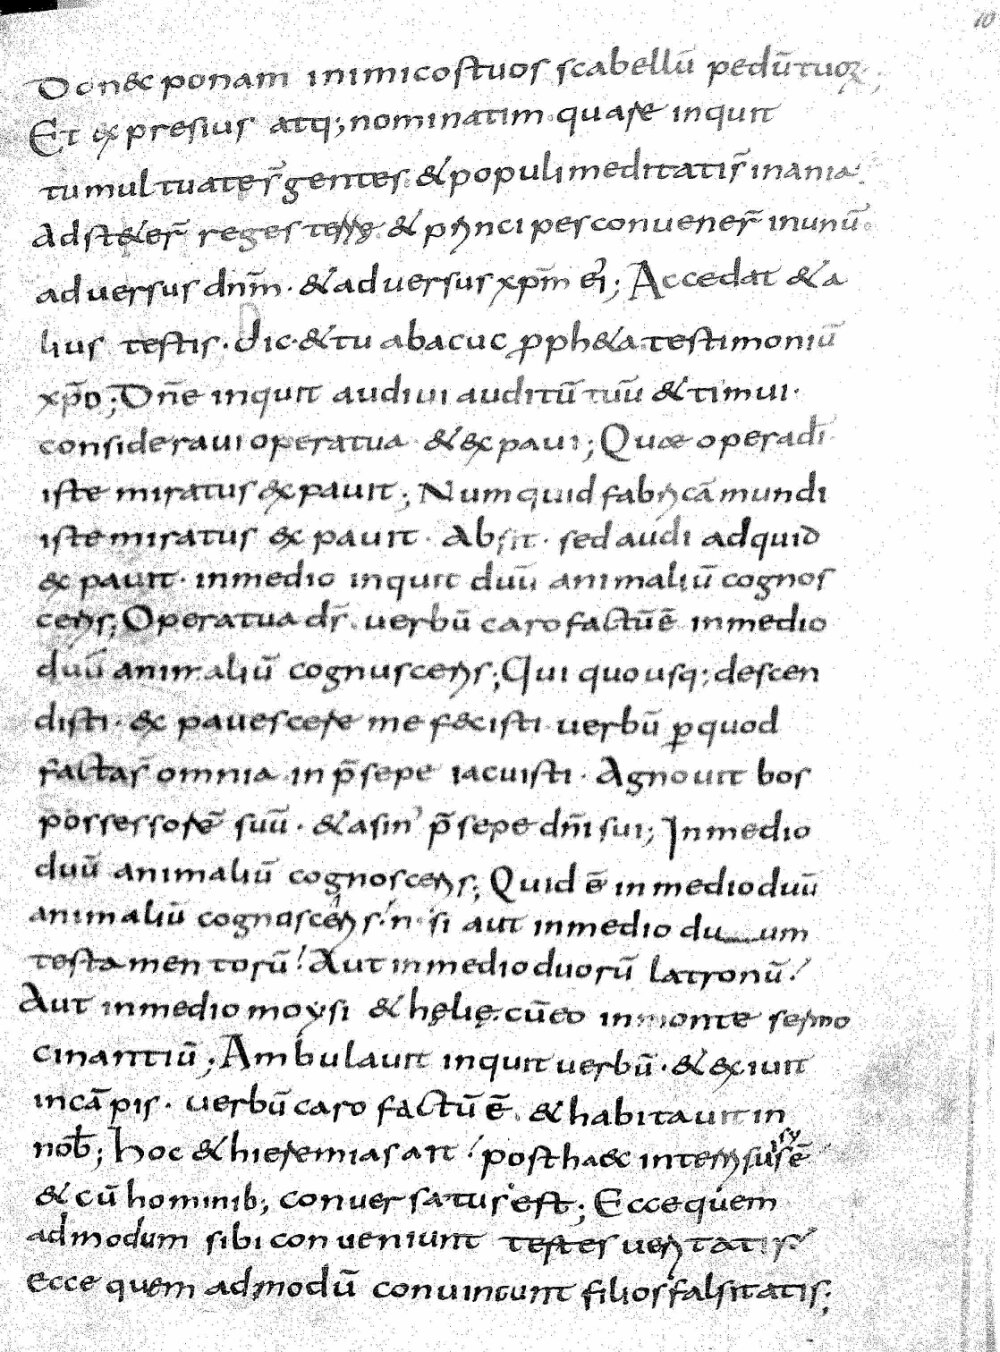 10
Donec ponam inimicos tuos scabellū pedū tuoꝝ;
Et expresius atq; nominatim quare inquit
tumultuates̄ gentes & populi meditatis̄ inania.
Adst&er̄ reges terrę & principes convener̄ in unū.
adversus dn̄m. & adversus xp̄m ei᾽; Accedat & a
lius testis. dic. & tu abacuc ꝓph&a testimoniū
xp̄o; Dn̄e inquit audivi auditū tuū & timui.
consideravi opera tua & expavi; Quae opera di
iste miratus expavit; Numquid fabricā mundi
iste miratus expavit. Absit. sed audi ad quid
expavit. in medio inquit duū animaliū cognos
ceris; Opera tua ds̄. verbū caro factū ē in medio
duū animaliū cognusceris; Qui quo usq; descen
disti. & pavescere me fecisti verbū ꝑ quod
facta s̄ omnia in p̄sepe iacuisti. Agnovit bos
possessorē suū. & asin᾽ p̄sepe dn̄i sui; In medio
duū animaliū cognosceris; Quid ē in medio duū
animaliū cognosceris. n᾽si aut in medio du um
testamentorū? Aut in medio duorū latronū?
Aut in medio moysi & hęlię. cū eo in monte sermo
cinantiū; Ambulavit inquit verbū. & exivit
in cāpis. verbū caro factū ē. & habitavit in
nob̄; hoc & hieremias ait? post haec in terris visus ē
& cū hominib; conversatus est; Ecce quem
admodum sibi conveniunt testes veritatis?
Ecce quem admodū convincunt filios falsitatis;